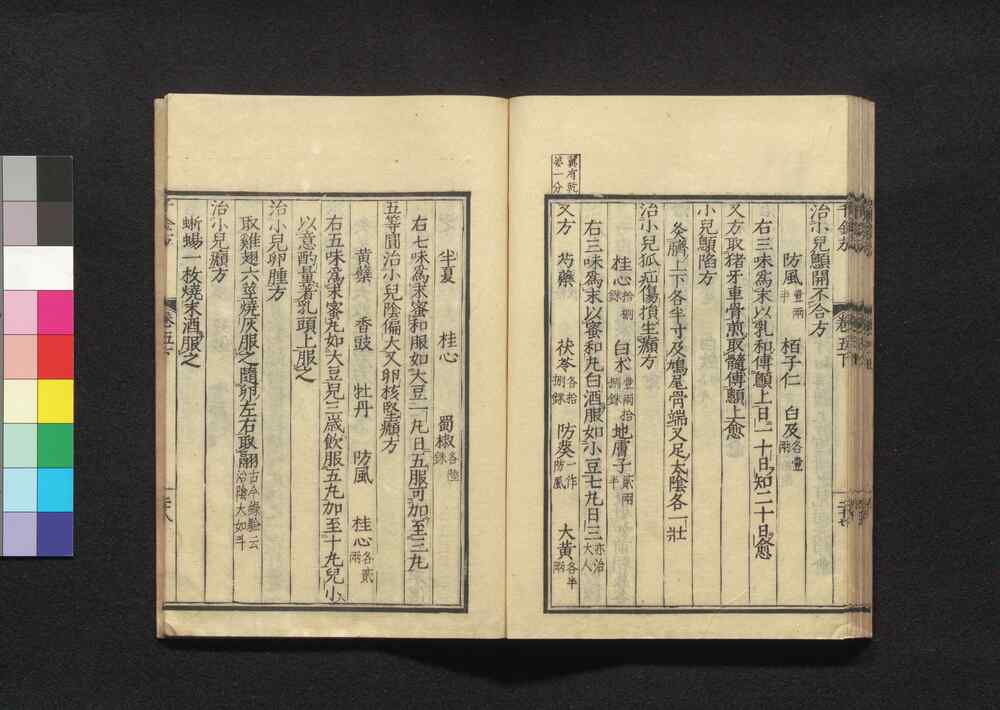 千金方 卷五下 二十七
治小兒顖開不合方
防風壹兩半 栢子仁 白及各壹兩
右三味爲末以乳和傅顖上日一十日知二十日愈
又方取猪牙車骨煎取髓傅顖上愈
小兒顖陷方
灸臍上下各半寸及鳩尾骨端又足太陰各一壯
治小兒狐疝傷損生㿗方
桂心拾捌銖 白术壹兩拾捌銖 地膚子貳兩半
右三味爲末以蜜和丸白酒服如小豆七丸日三亦治大人
又方 芍藥 茯苓各拾捌銖 防葵一作防風 大黃各半兩
半夏 桂心 蜀椒各陸銖
右七味爲末蜜和服如大豆一丸日五服可加至三丸
五等圓治小兒陰偏大又卵核堅㿗方
黃蘗 香豉 牡丹 防風 桂心各貳兩
右五味爲末蜜丸如大豆兒三歲飲服五丸加至十丸兒小
以意酌量著乳頭上服之
治小兒卵腫方
取雞翅六莖燒灰服之隨卵左右取翮古今錄驗云治陰大如斗
治小兒㿗方
蜥蜴一枚燒末酒服之
千金方 卷五下 二十八